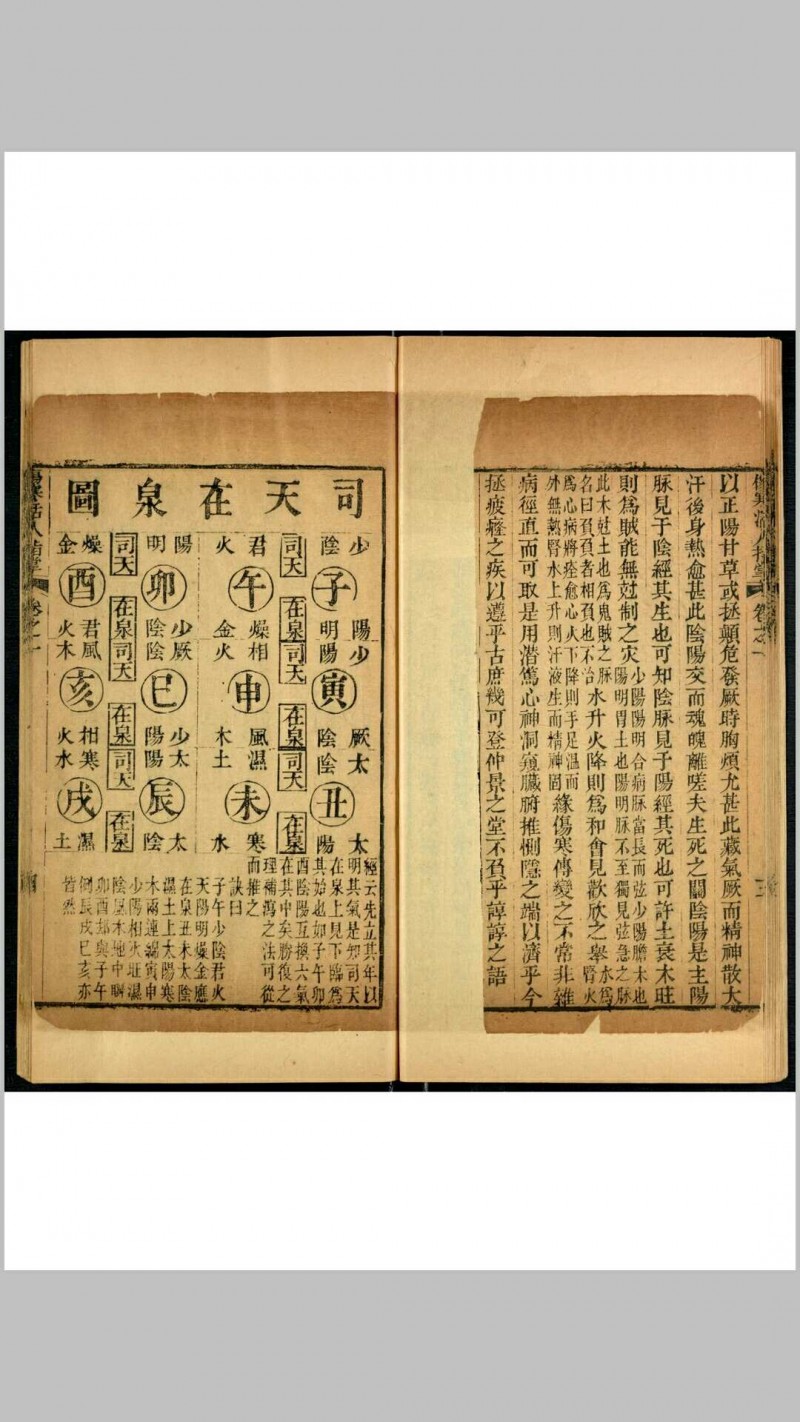 以正陽甘草或拯顛危發厥時胸煩尤甚此藏氣厥而精神散大
汗後身熱愈甚此陰陽交而魂魄離嗟夫生死之關陰陽是主陽
脉見于陰經其生也可知陰脉見于陽經其死也可許土衰木旺
則爲賊能無尅制之灾少陽陽明合病脉當長而弦少陽膽木也陽明胃土也陽明脉不至獨見弦急之脉
此木尅土也爲鬼賊之脉名曰負負者相負也不治水升火降則爲和會見歡欣之舉水爲腎火
爲心病將痊愈心火下降則手足温而外無熱腎水上升則汗液生而精神固緣傷寒傳變之不常非雜
病徑直而可取是用潛篤心神洞窺臟腑推惻隱之端以濟乎今
拯疲癃之疾以遵乎古庶幾可登仲景之堂不負乎諄諄之語
司天在泉圖
少陰 子 陽明
司天 在泉
君火 午 燥金
陽明 卯 少陰
司天 在泉
燥金 酉 君火
少陽 寅 厥陰
司天 在泉
相火 申 風木
厥陰 巳 少陽
司天 在泉
風木 亥 相火
太陰 丑 太陽
司天 在泉
濕土 未 寒水
太陽 辰 太陰
司天 在泉
寒水 戌 濕土
經云先立其年以
明其氣是知司天
在泉上見下臨爲
其始也如子午卯
酉陰陽互換六氣
在其中矣勝復之
理補瀉之法可從
而推之
訣曰
子午少陰君火
天陽明燥金應
在泉丑未太陰
濕土上太陽寒
水兩連綿寅申
少陽相火旺
陰風木地中
卯酉却與子午
倒辰戌巳亥亦
皆然